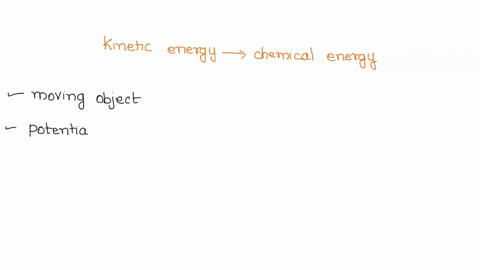 Kinetic energy → chemical energy
– moving object
– potentia